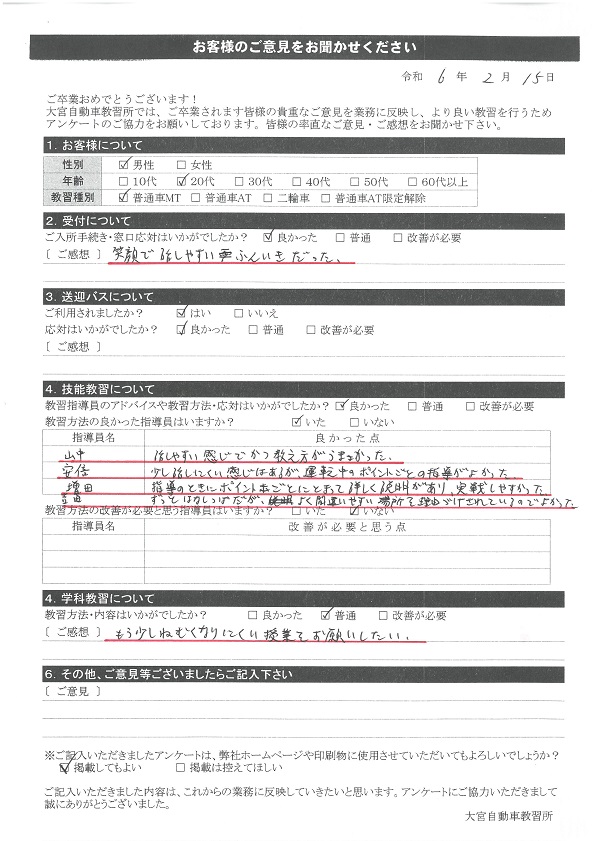 お客様のご意見をお聞かせください
令和 6 年 2 月 15 日
ご卒業おめでとうございます！
大宮自動車教習所では、ご卒業されます皆様の貴重なご意見を業務に反映し、より良い教習を行うため
アンケートのご協力をお願いしております。皆様の率直なご意見・ご感想をお聞かせ下さい。
1. お客様について
性別 ☑男性 □女性
年齢 □10代 ☑20代 □30代 □40代 □50代 □60代以上
教習種別 ☑普通車MT □普通車AT □二輪車 □普通車AT限定解除
2. 受付について
ご入所手続き・窓口応対はいかがでしたか？ ☑良かった □普通 □改善が必要
［ご感想］ 笑顔で話しやすいふんいきだった。
3. 送迎バスについて
ご利用されましたか？ ☑はい □いいえ
応対はいかがでしたか？ ☑良かった □普通 □改善が必要
［ご感想］
4. 技能教習について
教習指導員のアドバイスや教習方法・応対はいかがでしたか？ ☑良かった □普通 □改善が必要
教習方法の良かった指導員はいますか？ ☑いた □いない
指導員名 良かった点
山中 話しやすい感じでかつ教え方がうまかった。
安倍 少し話しにくい感じはあるが、運転中のポイントごとの指導がよかった
増田 指導のときにポイントごとにとまって詳しく説明があり、実戦しやすかった
吉田 ずっとはなしっぱだが、よく間違いやすい場所を理由づけされているのでよかった
教習方法の改善が必要と思う指導員はいますか？ □いた ☑いない
指導員名 改善が必要と思う点
4. 学科教習について
教習方法・内容はいかがでしたか？ □良かった ☑普通 □改善が必要
［ご感想］ もう少しねむくなりにくい授業をお願いしたい。
6. その他、ご意見等ございましたらご記入下さい
［ご意見］
※ご記入いただきましたアンケートは、弊社ホームページや印刷物に使用させていただいてもよろしいでしょうか？
☑掲載してもよい □掲載は控えてほしい
ご記入いただきました内容は、これからの業務に反映していきたいと思います。アンケートにご協力いただきまして
誠にありがとうございました。
大宮自動車教習所